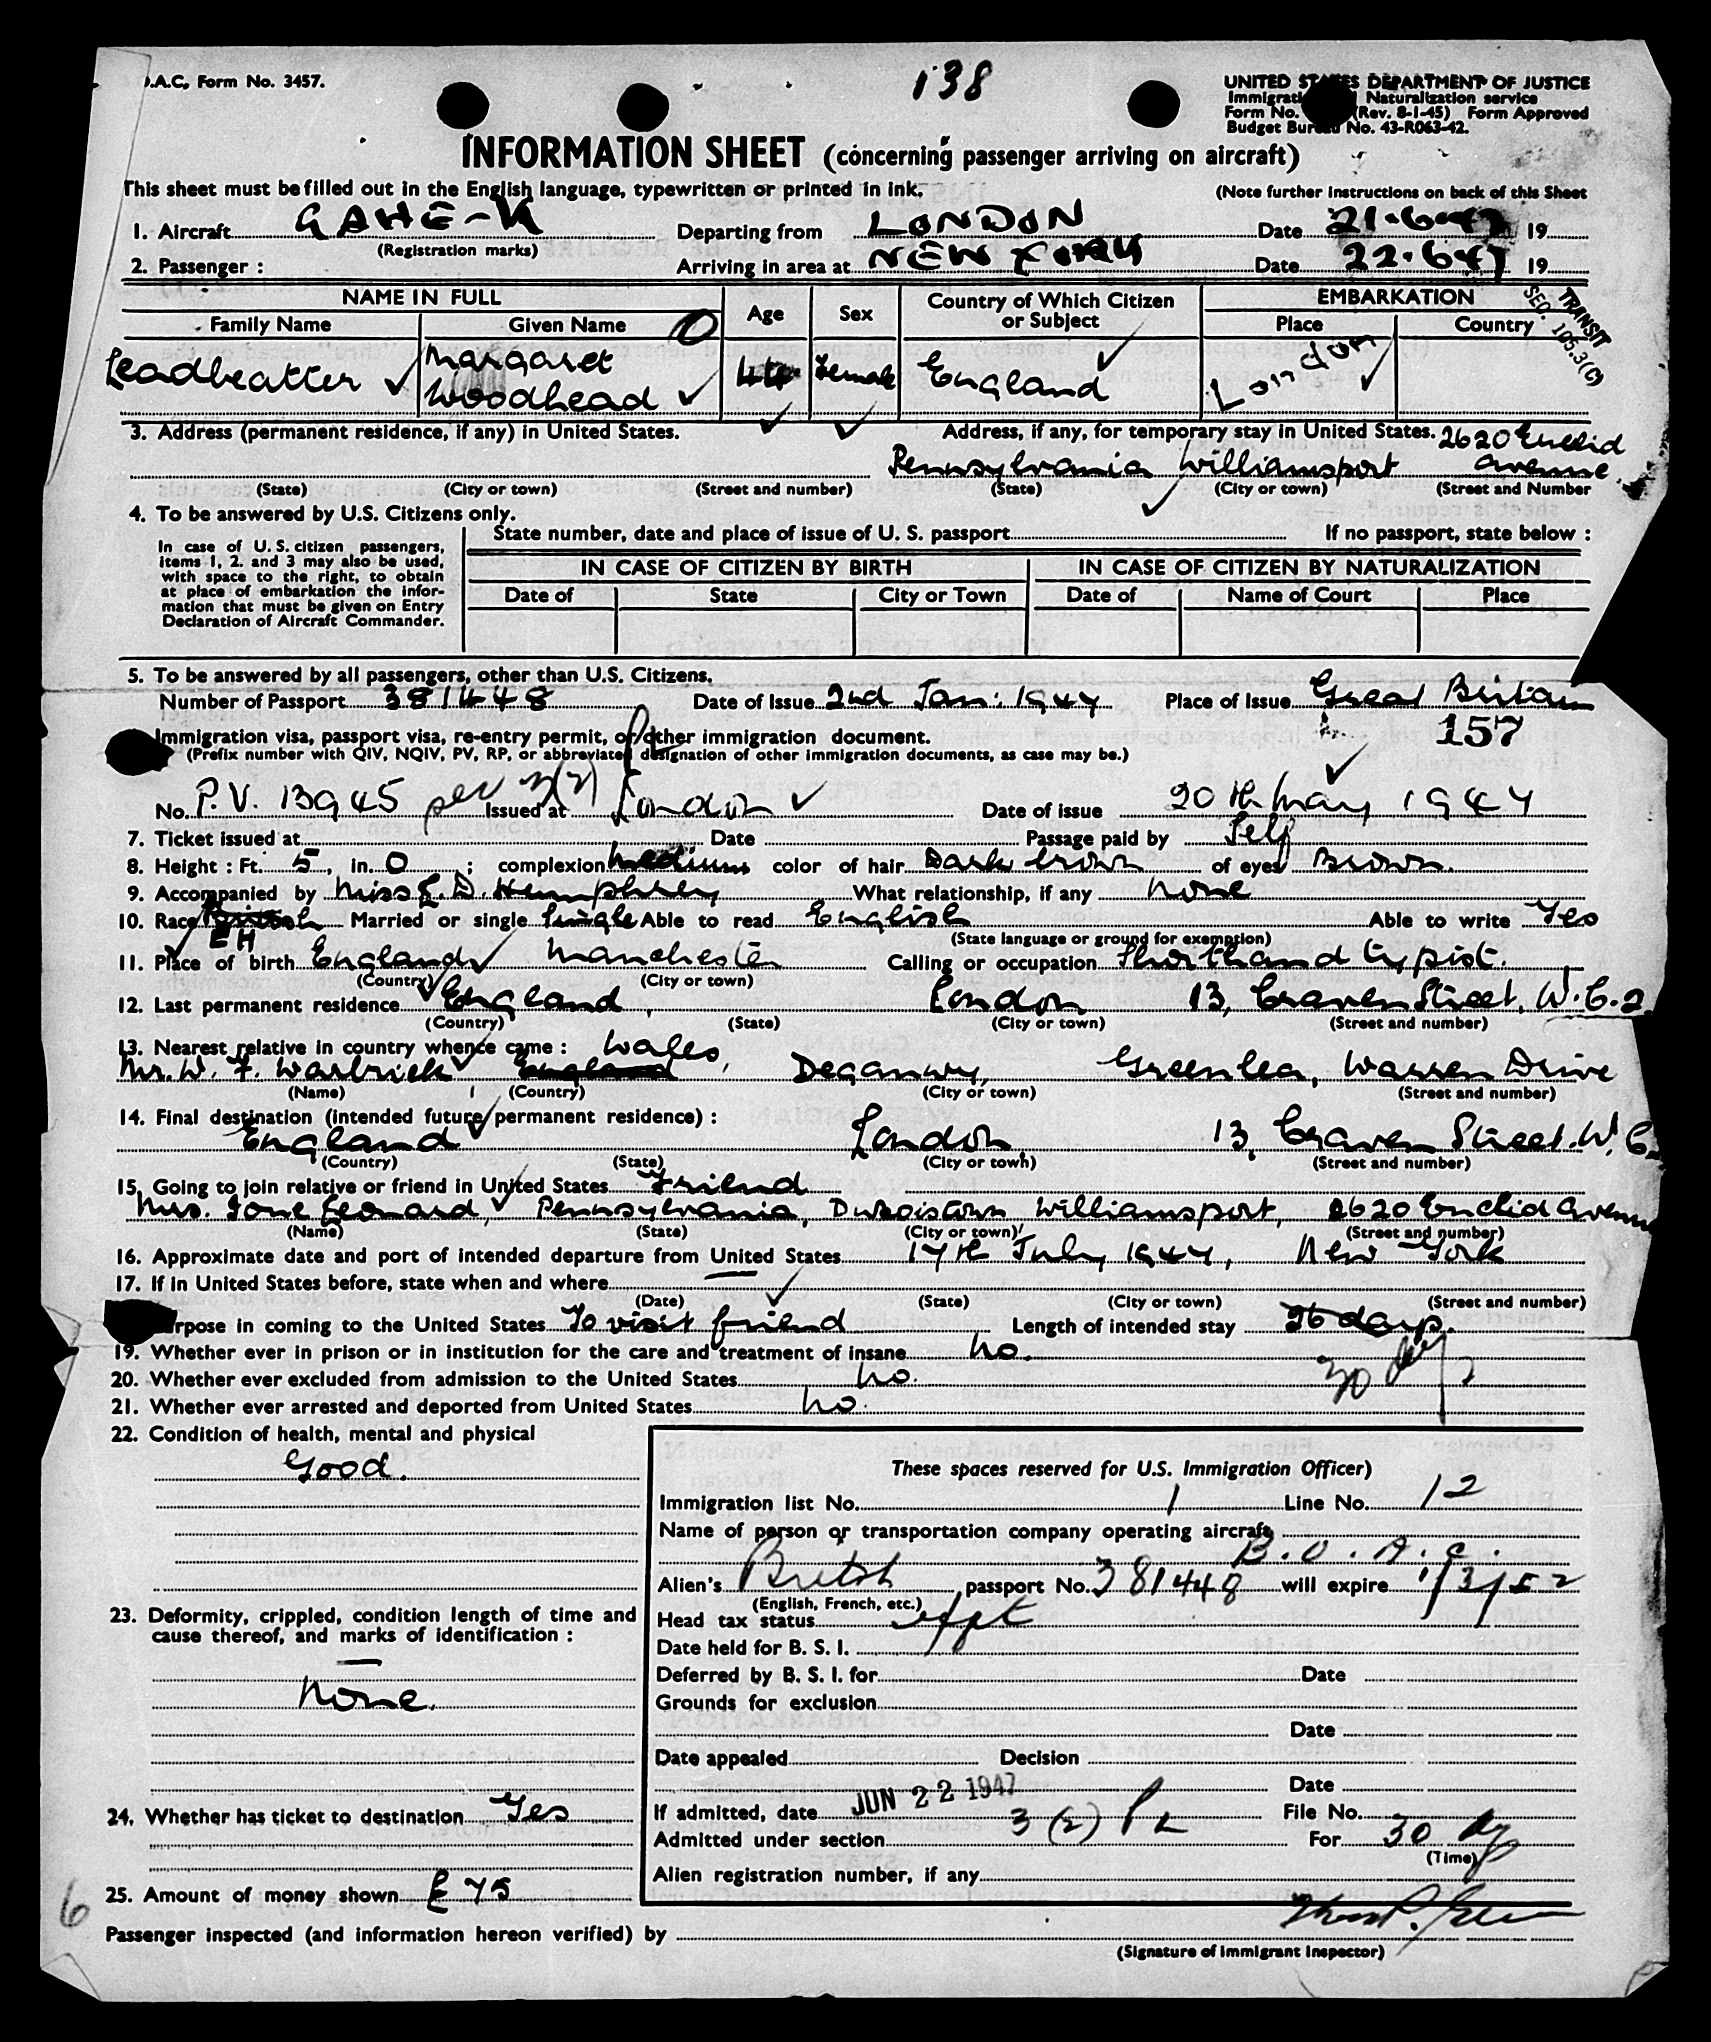 .A.C, Form No. 3457.
138
UNITED STATES DEPARTMENT OF JUSTICE
Immigrati Naturalization service
Form No. (Rev. 8-1-45) Form Approved
Budget Bureau No. 43-R063-42.
INFORMATION SHEET (concerning passenger arriving on aircraft)
This sheet must be filled out in the English language, typewritten or printed in ink.
(Note further instructions on back of this Sheet
1. Aircraft GAHE-K Departing from LONDON Date 21·6·47 19
(Registration marks)
2. Passenger : Arriving in area at NEW YORK Date 22·6·47 19
NAME IN FULL Age Sex Country of Which Citizen or Subject EMBARKATION
Family Name Given Name Place Country
TRANSIT
SEC. 105.3(C)
Leadbeatter Margaret Woodhead 44 Female England London
3. Address (permanent residence, if any) in United States. Address, if any, for temporary stay in United States. 2620 Euclid
Pennsylvania Williamsport Avenue
(State) (City or town) (Street and number) (State) (City or town) (Street and Number
4. To be answered by U.S. Citizens only.
State number, date and place of issue of U. S. passport If no passport, state below :
In case of U.S. citizen passengers,
items 1, 2. and 3 may also be used,
with space to the right, to obtain
at place of embarkation the infor-
mation that must be given on Entry
Declaration of Aircraft Commander.
IN CASE OF CITIZEN BY BIRTH IN CASE OF CITIZEN BY NATURALIZATION
Date of State City or Town Date of Name of Court Place
5. To be answered by all passengers, other than U.S. Citizens.
Number of Passport 381448 Date of Issue 2nd Jan: 1947 Place of Issue Great Britain
157
Immigration visa, passport visa, re-entry permit, or other immigration document.
(Prefix number with QIV, NQIV, PV, RP, or abbreviated designation of other immigration documents, as case may be.)
No. P.V. 13945 sec 3(2) Issued at London Date of issue 20th May 1947
7. Ticket issued at Date Passage paid by Self
8. Height : Ft. 5, in. 0 ; complexion Medium color of hair Dark brown of eyes Brown.
9. Accompanied by Miss E. D. Humphrey What relationship, if any None
10. Race British Married or single Single Able to read English Able to write Yes
EH (State language or ground for exemption)
11. Place of birth England Manchester Calling or occupation Shorthand typist.
(Country) (City or town)
12. Last permanent residence England, London 13, Craven Street, W.C.2.
(Country) (State) (City or town) (Street and number)
13. Nearest relative in country whence came : Wales,
Mr. W. F. Warbrick England Deganwy, Greenlea, Warren Drive
(Name) (Country) (City or town) (Street and number)
14. Final destination (intended future permanent residence) :
England London, 13, Craven Street. W.C.
(Country) (State) (City or town) (Street and number)
15. Going to join relative or friend in United States Friend
Mrs. Ione Leonard, Pennsylvania, Duboistown Williamsport, 2620 Euclid Avenue
(Name) (State) (City or town) (Street and number)
16. Approximate date and port of intended departure from United States 17th July, 1947, New York
17. If in United States before, state when and where —
(Date) (State) (City or town) (Street and number)
rpose in coming to the United States To visit friend Length of intended stay 26 days.
19. Whether ever in prison or in institution for the care and treatment of insane No.
30 dys
20. Whether ever excluded from admission to the United States No.
21. Whether ever arrested and deported from United States No.
22. Condition of health, mental and physical
Good.
These spaces reserved for U.S. Immigration Officer)
Immigration list No. 1 Line No. 12
Name of person or transportation company operating aircraft
B.O.A.C.
Alien's British passport No. 381448 will expire 1/3/52
(English, French, etc.)
Head tax status
Date held for B. S. I.
Deferred by B. S. I. for Date
Grounds for exclusion
Date
Date appealed Decision
Date
If admitted, date JUN 22 1947 File No.
Admitted under section 3 (2) For 30 dys
(Time)
Alien registration number, if any
23. Deformity, crippled, condition length of time and
cause thereof, and marks of identification :
None.
24. Whether has ticket to destination Yes
25. Amount of money shown £75
6
Passenger inspected (and information hereon verified) by
(Signature of Immigrant Inspector)